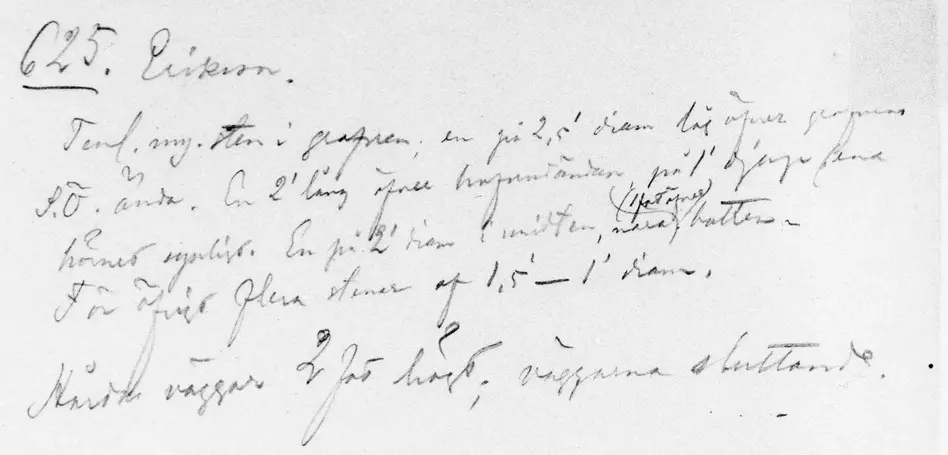 625. Erikson.
Teml. my. sten i grafven; en på 2,5' diam låg öfver grafvens
S.Ö. ända. En 2' lång öfver hufvudändan, på 1' djup, ena
hörnet synligt. En på 2' diam i midten, nära (1 fot öfver) botten.
För öfrigt flera stenar af 1,5' — 1' diam.
Hårda väggar 2 fot högt; väggarna sluttande.